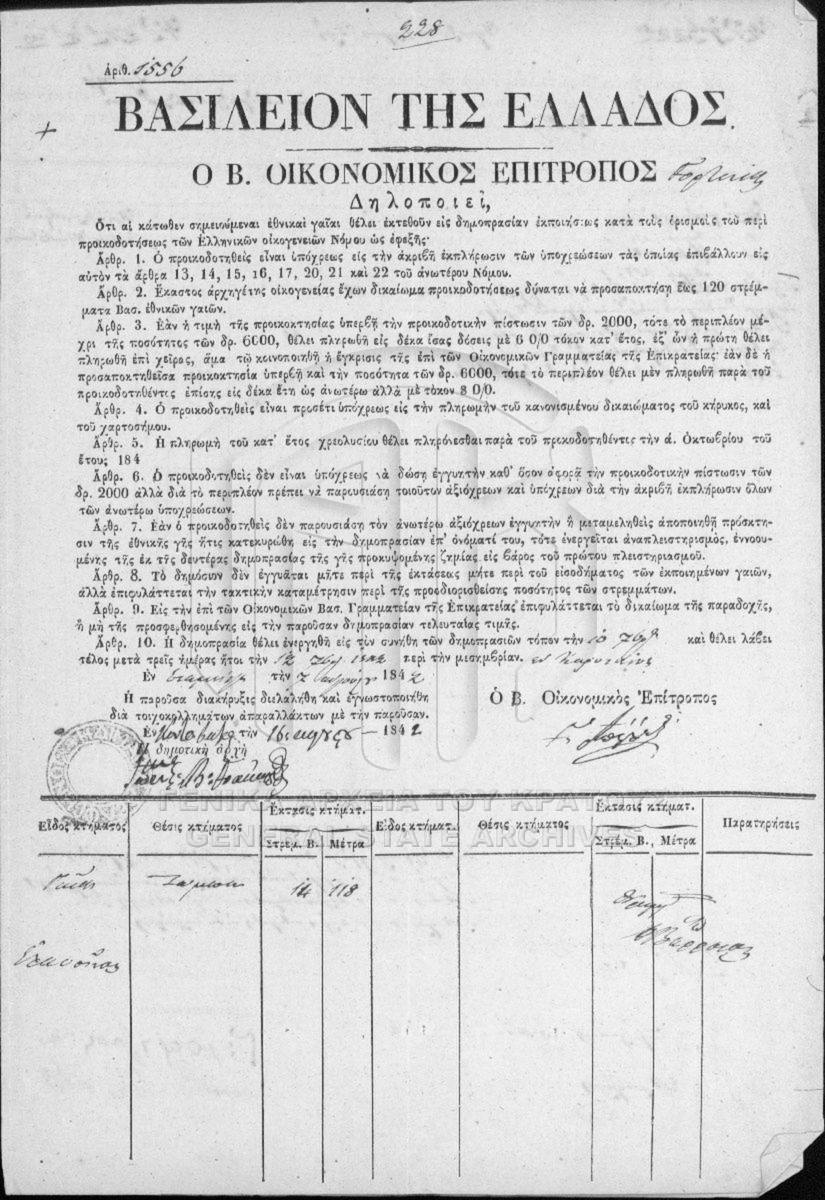 228
Ἀριθ. 1556
ΒΑΣΙΛΕΙΟΝ ΤΗΣ ΕΛΛΑΔΟΣ.
Ο Β. ΟΙΚΟΝΟΜΙΚΟΣ ΕΠΙΤΡΟΠΟΣ
Δηλοποιεῖ,
Ὅτι αἱ κάτωθεν σημειούμεναι ἐθνικαὶ γαῖαι θέλει ἐκτεθοῦν εἰς δημοπρασίαν ἐκποιήσεως κατὰ τοὺς ὁρισμοὺς τοῦ περὶ
προικοδοτήσεως τῶν Ἑλληνικῶν οἰκογενειῶν Νόμου ὡς ἐφεξῆς·
Ἄρθρ. 1. Ὁ προικοδοτηθεὶς εἶναι ὑπόχρεως εἰς τὴν ἀκριβῆ ἐκπλήρωσιν τῶν ὑποχρεώσεων τὰς ὁποίας ἐπιβάλλουν εἰς
αὐτὸν τὰ ἄρθρα 13, 14, 15, 16, 17, 20, 21 καὶ 22 τοῦ ἀνωτέρου Νόμου.
Ἄρθρ. 2. Ἕκαστος ἀρχηγέτης οἰκογενείας ἔχων δικαίωμα προικοδοτήσεως δύναται νὰ προσαποκτήσῃ ἕως 120 στρέμ-
ματα Βασ. ἐθνικῶν γαιῶν.
Ἄρθρ. 3. Ἐὰν ἡ τιμὴ τῆς προικοκτησίας ὑπερβῇ τὴν προικοδοτικὴν πίστωσιν τῶν δρ. 2000, τότε τὸ περιπλέον μέ-
χρι τῆς ποσότητος τῶν δρ. 6000, θέλει πληρωθῇ εἰς δέκα ἴσας δόσεις μὲ 6 0/0 τόκον κατ' ἔτος, ἐξ' ὧν ἡ πρώτη θέλει
πληρωθῇ ἐπὶ χεῖρος, ἅμα τῷ κοινοποιηθῇ ἡ ἔγκρισις τῆς ἐπὶ τῶν Οἰκονομικῶν Γραμματείας τῆς Ἐπικρατείας· ἐὰν δὲ ἡ
προσαποκτηθεῖσα προικοκτησία ὑπερβῇ καὶ τὴν ποσότητα τῶν δρ. 6000, τότε τὸ περιπλέον θέλει μὲν πληρωθῇ παρὰ τοῦ
προικοδοτηθέντος ἐπίσης εἰς δέκα ἔτη ὡς ἀνωτέρω ἀλλὰ μὲ τόκον 8 0/0.
Ἄρθρ. 4. Ὁ προικοδοτηθεὶς εἶναι προσέτι ὑπόχρεως εἰς τὴν πληρωμὴν τοῦ κανονισμένου δικαιώματος τοῦ κήρυκος, καὶ
τοῦ χαρτοσήμου.
Ἄρθρ. 5. Ἡ πληρωμὴ τοῦ κατ' ἔτος χρεολυσίου θέλει πληρόνεσθαι παρὰ τοῦ προκοδοτηθέντος τὴν ά. Ὀκτωβρίου τοῦ
ἔτους 184
Ἄρθρ. 6. Ὁ προικοδοτηθεὶς δὲν εἶναι ὑπόχρεως νὰ δώσῃ ἐγγυητὴν καθ' ὅσον ἀφορᾷ τὴν προικοδοτικὴν πίστωσιν τῶν
δρ. 2000 ἀλλὰ διὰ τὸ περιπλέον πρέπει νὰ παρουσιάσῃ τοιοῦτον ἀξιόχρεων καὶ ὑπόχρεων διὰ τὴν ἀκριβῆ ἐκπλήρωσιν ὅλων
τῶν ἀνωτέρω ὑποχρεώσεων.
Ἄρθρ. 7. Ἐὰν ὁ προικοδοτηθεὶς δὲν παρουσιάσῃ τὸν ἀνωτέρω ἀξιόχρεων ἐγγυητὴν ἢ μεταμεληθεὶς ἀποποιηθῇ πρόσκτη-
σιν τῆς ἐθνικῆς γῆς ἥτις κατεκυρώθη εἰς τὴν δημοπρασίαν ἐπ' ὀνόματί του, τότε ἐνεργεῖται ἀναπλειστηρισμὸς, ἐννοου-
μένης τῆς ἐκ τῆς δευτέρας δημοπρασίας τῆς γῆς προκυψομένης ζημίας εἰς βάρος τοῦ πρώτου πλειστηριασμοῦ.
Ἄρθρ. 8. Τὸ δημόσιον δὲν ἐγγυᾶται μήτε περὶ τῆς ἐκτάσεως μήτε περὶ τοῦ εἰσοδήματος τῶν ἐκποιημένων γαιῶν,
ἀλλὰ ἐπιφυλάττεται τὴν τακτικὴν καταμέτρησιν περὶ τῆς προεδιορισθείσης ποσότητος τῶν στρεμμάτων.
Ἄρθρ. 9. Εἰς τὴν ἐπὶ τῶν Οἰκονομικῶν Βασ. Γραμματείαν τῆς Ἐπικρατείας ἐπιφυλάττεται τὸ δικαίωμα τῆς παραδοχῆς,
ἢ μὴ τῆς προσφερθησομένης εἰς τὴν παροῦσαν δημοπρασίαν τελευταίας τιμῆς.
Ἄρθρ. 10. Ἡ δημοπρασία θέλει ἐνεργηθῆ εἰς τὸν συνήθη τῶν δημοπρασιῶν τόπον τὴν 10 καὶ θέλει λάβει
τέλος μετὰ τρεῖς ἡμέρας ἤτοι τὴν 12 1842 περὶ τὴν μεσημβρίαν.
Ἐν τὴν 7 1842
Ἡ παροῦσα διακήρυξις διελαλήθη καὶ ἐγνωστοποιήθη
διὰ τοιχοκολλημάτων ἀπαραλλάκτων μὲ τὴν παροῦσαν.
Ἐν τὴν 16 1842
Ἡ δημοτικὴ ἀρχὴ
Ὁ Β. Οἰκονομικὸς Ἐπίτροπος
ΓΕΝΙΚΑ ΑΡΧΕΙΑ ΤΟΥ ΚΡΑΤΟΥΣ
GENERAL STATE ARCHIVES
Εἶδος κτήματος Θέσις κτήματος Ἔκτασις κτήματ. Εἶδος κτήματ. Θέσις κτήματος Ἔκτασις κτήματ. Παρατηρήσεις
Στρέμ. Β. Μέτρα Στρέμ. Β. Μέτρα
14 118